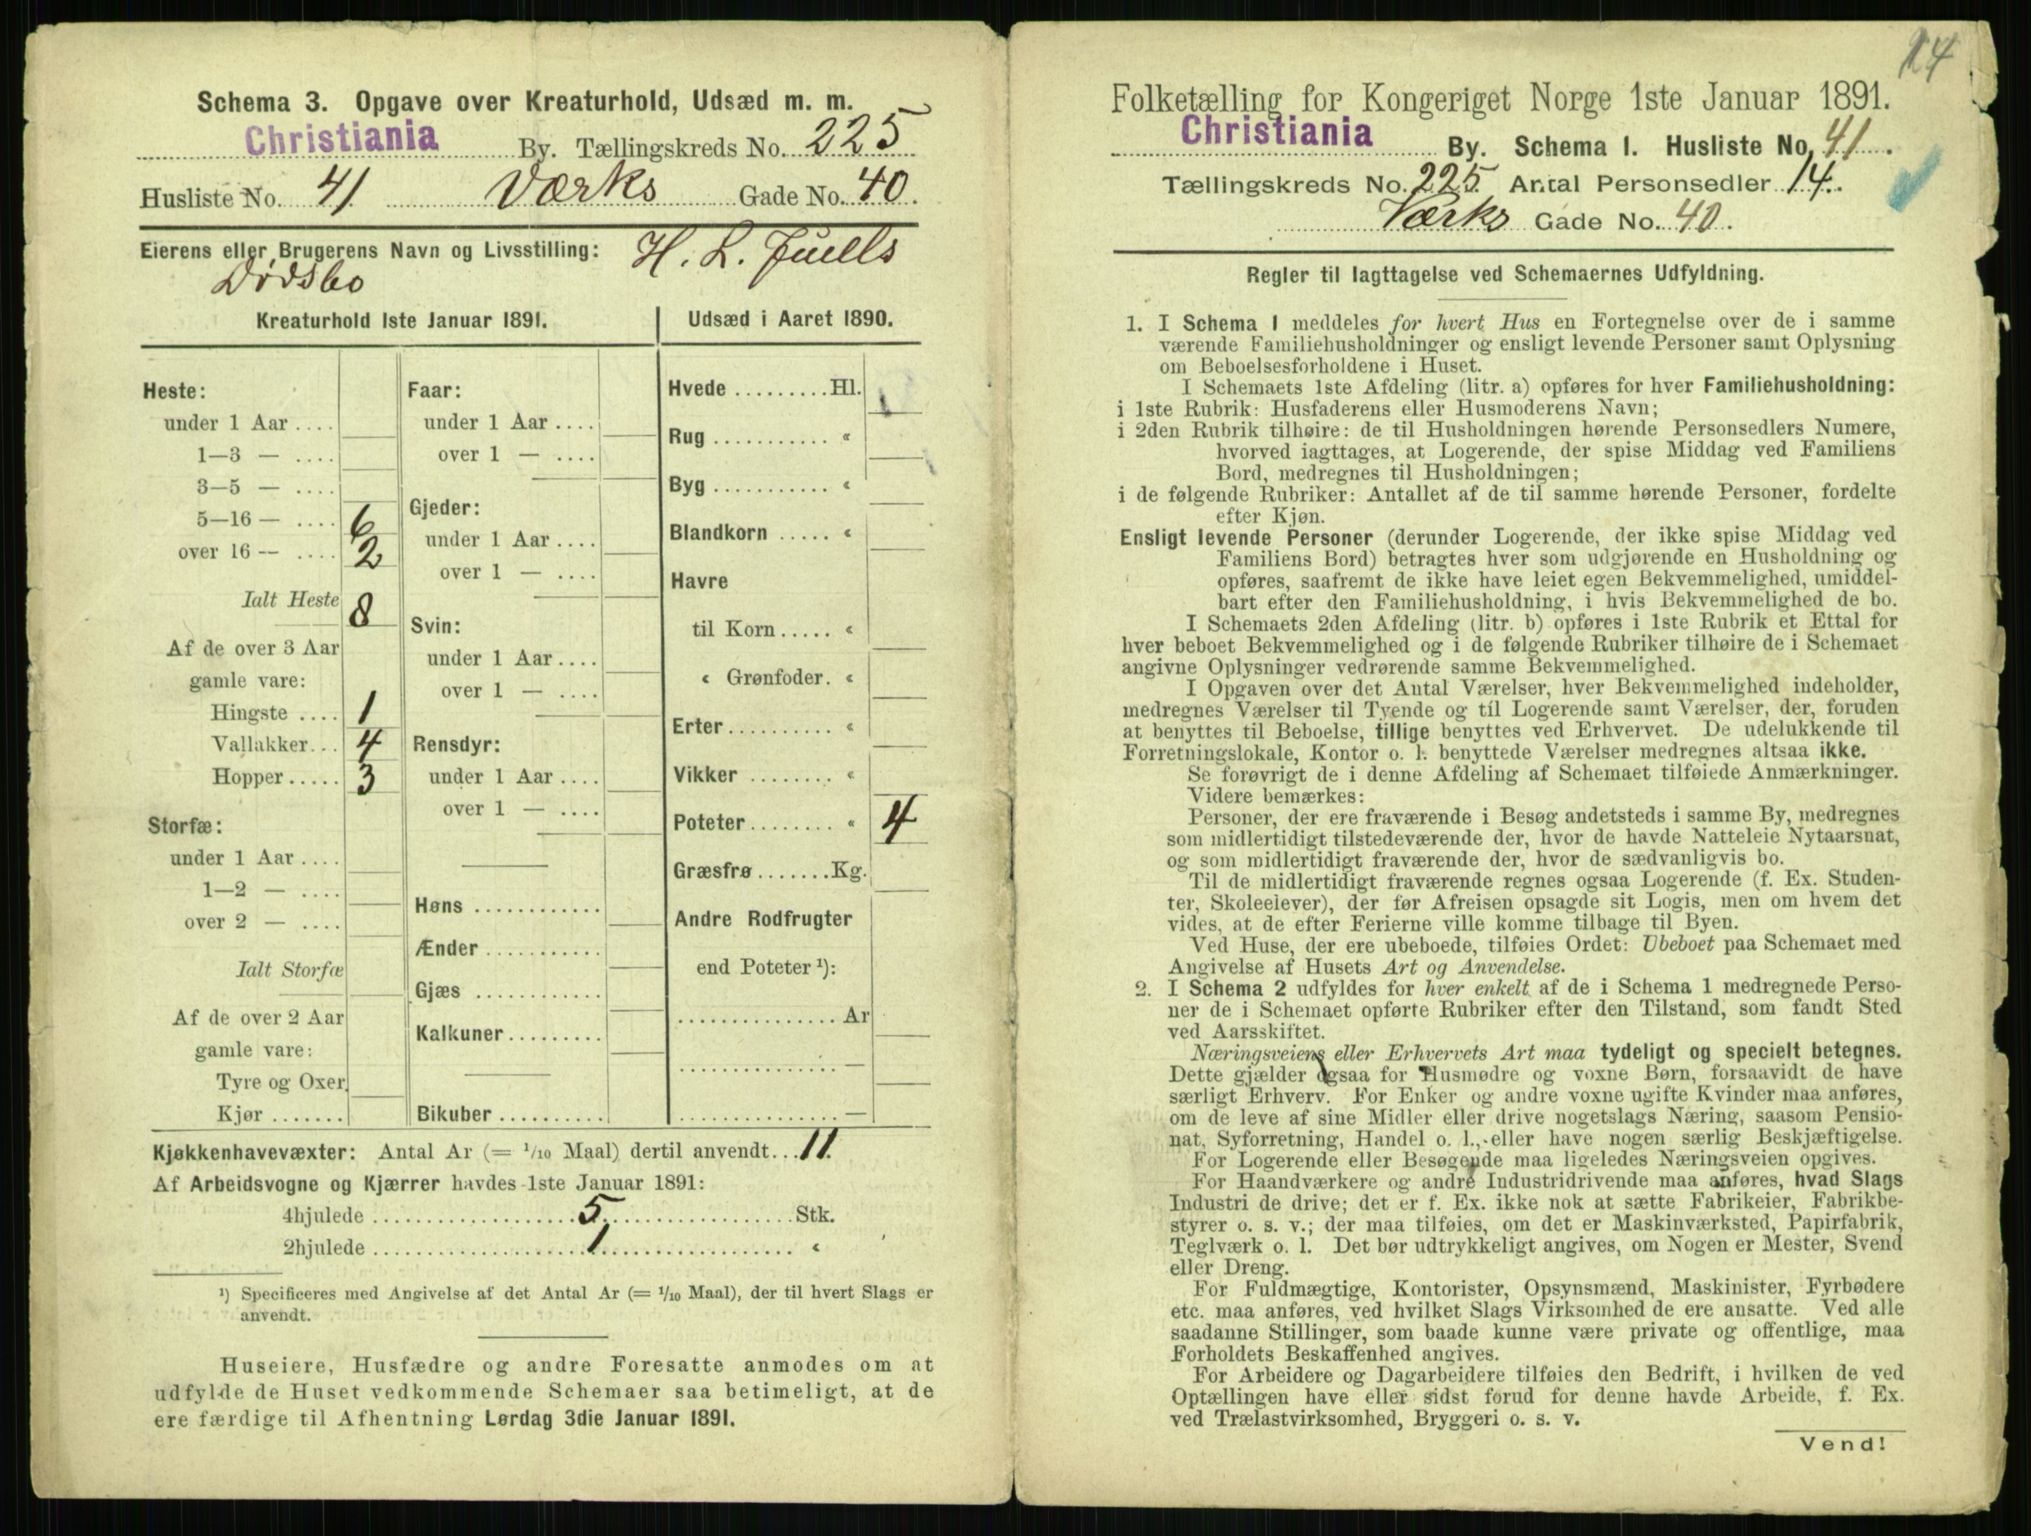 Schema 3. Opgave over Kreaturhold, Udsæd m. m.
Christiania By. Tællingskreds No. 225
Husliste No. 41 Værks Gade No. 40.
Eierens eller Brugerens Navn og Livsstilling: H. L. Juells
Dødsbo
Kreaturhold 1ste Januar 1891.
Heste:
under 1 Aar ....
1—3 — ....
3—5 — ....
5—16 — .... 6
over 16 — .... 2
Ialt Heste 8
Af de over 3 Aar
gamle vare:
Hingste .... 1
Vallakker... 4
Hopper..... 3
Storfæ:
under 1 Aar ....
1—2 — ....
over 2 — ....
Ialt Storfæ
Af de over 2 Aar
gamle vare:
Tyre og Oxer
Kjør .......
Faar:
under 1 Aar ....
over 1 — ....
Gjeder:
under 1 Aar ....
over 1 — ....
Svin:
under 1 Aar ....
over 1 — ....
Rensdyr:
under 1 Aar ....
over 1 — ....
Høns ............
Ænder ...........
Gjæs ............
Kalkuner.........
Bikuber ..........
Udsæd i Aaret 1890.
Hvede .........Hl.
Rug ........... «
Byg ........... «
Blandkorn ..... «
Havre
til Korn ..... «
« Grønfoder. «
Erter.......... «
Vikker ........ «
Poteter........ « 4
Græsfrø .......Kg.
Andre Rodfrugter
end Poteter ¹):
............... Ar
............... —
............... —
Kjøkkenhavevæxter: Antal Ar (= 1/10 Maal) dertil anvendt... 11.
Af Arbeidsvogne og Kjærrer havdes 1ste Januar 1891:
4hjulede .................. 5 ..................Stk.
2hjulede .................. 1 .................. «
¹) Specificeres med Angivelse af det Antal Ar (= 1/10 Maal), der til hvert Slags er
anvendt.
Huseiere, Husfædre og andre Foresatte anmodes om at
udfylde de Huset vedkommende Schemaer saa betimeligt, at de
ere færdige til Afhentning Lørdag 3die Januar 1891.
24
Folketælling for Kongeriget Norge 1ste Januar 1891.
Christiania By. Schema I. Husliste No. 41.
Tællingskreds No. 225. Antal Personsedler 14.
Værks Gade No. 40.
Regler til Iagttagelse ved Schemaernes Udfyldning.
1. I Schema 1 meddeles for hvert Hus en Fortegnelse over de i samme
værende Familiehusholdninger og ensligt levende Personer samt Oplysning
om Beboelsesforholdene i Huset.
I Schemaets 1ste Afdeling (litr. a) opføres for hver Familiehusholdning:
i 1ste Rubrik: Husfaderens eller Husmoderens Navn;
i 2den Rubrik tilhøire: de til Husholdningen hørende Personsedlers Numere,
hvorved iagttages, at Logerende, der spise Middag ved Familiens
Bord, medregnes til Husholdningen;
i de følgende Rubriker: Antallet af de til samme hørende Personer, fordelte
efter Kjøn.
Ensligt levende Personer (derunder Logerende, der ikke spise Middag ved
Familiens Bord) betragtes hver som udgjørende en Husholdning og
opføres, saafremt de ikke have leiet egen Bekvemmelighed, umiddel-
bart efter den Familiehusholdning, i hvis Bekvemmelighed de bo.
I Schemaets 2den Afdeling (litr. b) opføres i 1ste Rubrik et Ettal for
hver beboet Bekvemmelighed og i de følgende Rubriker tilhøire de i Schemaet
angivne Oplysninger vedrørende samme Bekvemmelighed.
I Opgaven over det Antal Værelser, hver Bekvemmelighed indeholder,
medregnes Værelser til Tyende og til Logerende samt Værelser, der, foruden
at benyttes til Beboelse, tillige benyttes ved Erhvervet. De udelukkende til
Forretningslokale, Kontor o. l. benyttede Værelser medregnes altsaa ikke.
Se forøvrigt de i denne Afdeling af Schemaet tilføiede Anmærkninger.
Videre bemærkes:
Personer, der ere fraværende i Besøg andetsteds i samme By, medregnes
som midlertidigt tilstedeværende der, hvor de havde Natteleie Nytaarsnat,
og som midlertidigt fraværende der, hvor de sædvanligvis bo.
Til de midlertidigt fraværende regnes ogsaa Logerende (f. Ex. Studen-
ter, Skoleelever), der før Afreisen opsagde sit Logis, men om hvem det
vides, at de efter Ferierne ville komme tilbage til Byen.
Ved Huse, der ere ubeboede, tilføies Ordet: Ubeboet paa Schemaet med
Angivelse af Husets Art og Anvendelse.
2. I Schema 2 udfyldes for hver enkelt af de i Schema 1 medregnede Perso-
ner de i Schemaet opførte Rubriker efter den Tilstand, som fandt Sted
ved Aarsskiftet.
Næringsveiens eller Erhvervets Art maa tydeligt og specielt betegnes.
Dette gjælder ogsaa for Husmødre og voxne Børn, forsaavidt de have
særligt Erhverv. For Enker og andre voxne ugifte Kvinder maa anføres,
om de leve af sine Midler eller drive nogetslags Næring, saasom Pensio-
nat, Syforretning, Handel o. l., eller have nogen særlig Beskjæftigelse.
For Logerende eller Besøgende maa ligeledes Næringsveien opgives.
For Haandværkere og andre Industridrivende maa anføres, hvad Slags
Industri de drive; det er f. Ex. ikke nok at sætte Fabrikeier, Fabrikbe-
styrer o. s. v.; der maa tilføies, om det er Maskinværksted, Papirfabrik,
Teglværk o. l. Det bør udtrykkeligt angives, om Nogen er Mester, Svend
eller Dreng.
For Fuldmægtige, Kontorister, Opsynsmænd, Maskinister, Fyrbødere
etc. maa anføres, ved hvilket Slags Virksomhed de ere ansatte. Ved alle
saadanne Stillinger, som baade kunne være private og offentlige, maa
Forholdets Beskaffenhed angives.
For Arbeidere og Dagarbeidere tilføies den Bedrift, i hvilken de ved
Optællingen have eller sidst forud for denne havde Arbeide, f. Ex.
ved Trælastvirksomhed, Bryggeri o. s. v.
Vend!